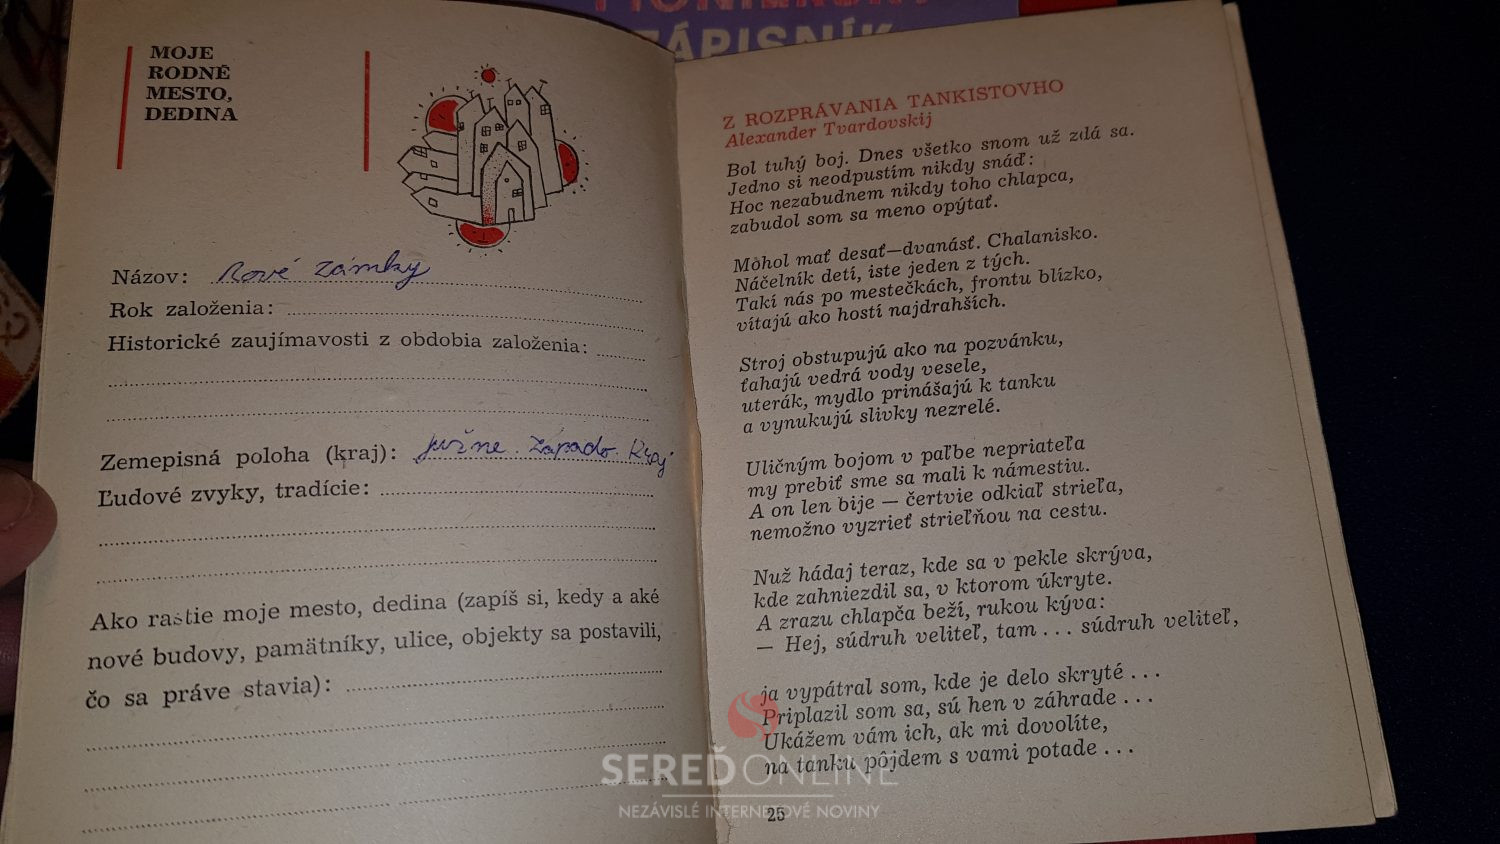 PIONIERSKÝ
ZÁPISNÍK
MOJE
RODNÉ
MESTO,
DEDINA
Názov: Nové Zámky
Rok založenia:
Historické zaujímavosti z obdobia založenia:
Zemepisná poloha (kraj): južne. západo. Kraj
Ľudové zvyky, tradície:
Ako rastie moje mesto, dedina (zapíš si, kedy a aké
nové budovy, pamätníky, ulice, objekty sa postavili,
čo sa práve stavia):
Z ROZPRÁVANIA TANKISTOVHO
Alexander Tvardovskij
Bol tuhý boj. Dnes všetko snom už zdá sa.
Jedno si neodpustím nikdy snáď:
Hoc nezabudnem nikdy toho chlapca,
zabudol som sa meno opýtať.
Mohol mať desať—dvanásť. Chalanisko.
Náčelník detí, iste jeden z tých.
Takí nás po mestečkách, frontu blízko,
vítajú ako hostí najdrahších.
Stroj obstupujú ako na pozvánku,
ťahajú vedrá vody vesele,
uterák, mydlo prinášajú k tanku
a vynukujú slivky nezrelé.
Uličným bojom v paľbe nepriateľa
my prebiť sme sa mali k námestiu.
A on len bije — čertvie odkiaľ strieľa,
nemožno vyzrieť strieľňou na cestu.
Nuž hádaj teraz, kde sa v pekle skrýva,
kde zahniezdil sa, v ktorom úkryte.
A zrazu chlapča beží, rukou kýva:
— Hej, súdruh veliteľ, tam . . . súdruh veliteľ,
ja vypátral som, kde je delo skryté . . .
Priplazil som sa, sú hen v záhrade . . .
Ukážem vám ich, ak mi dovolíte,
na tanku pôjdem s vami potade . . .
25
SEREĎONLINE
NEZÁVISLÉ INTERNETOVÉ NOVINY